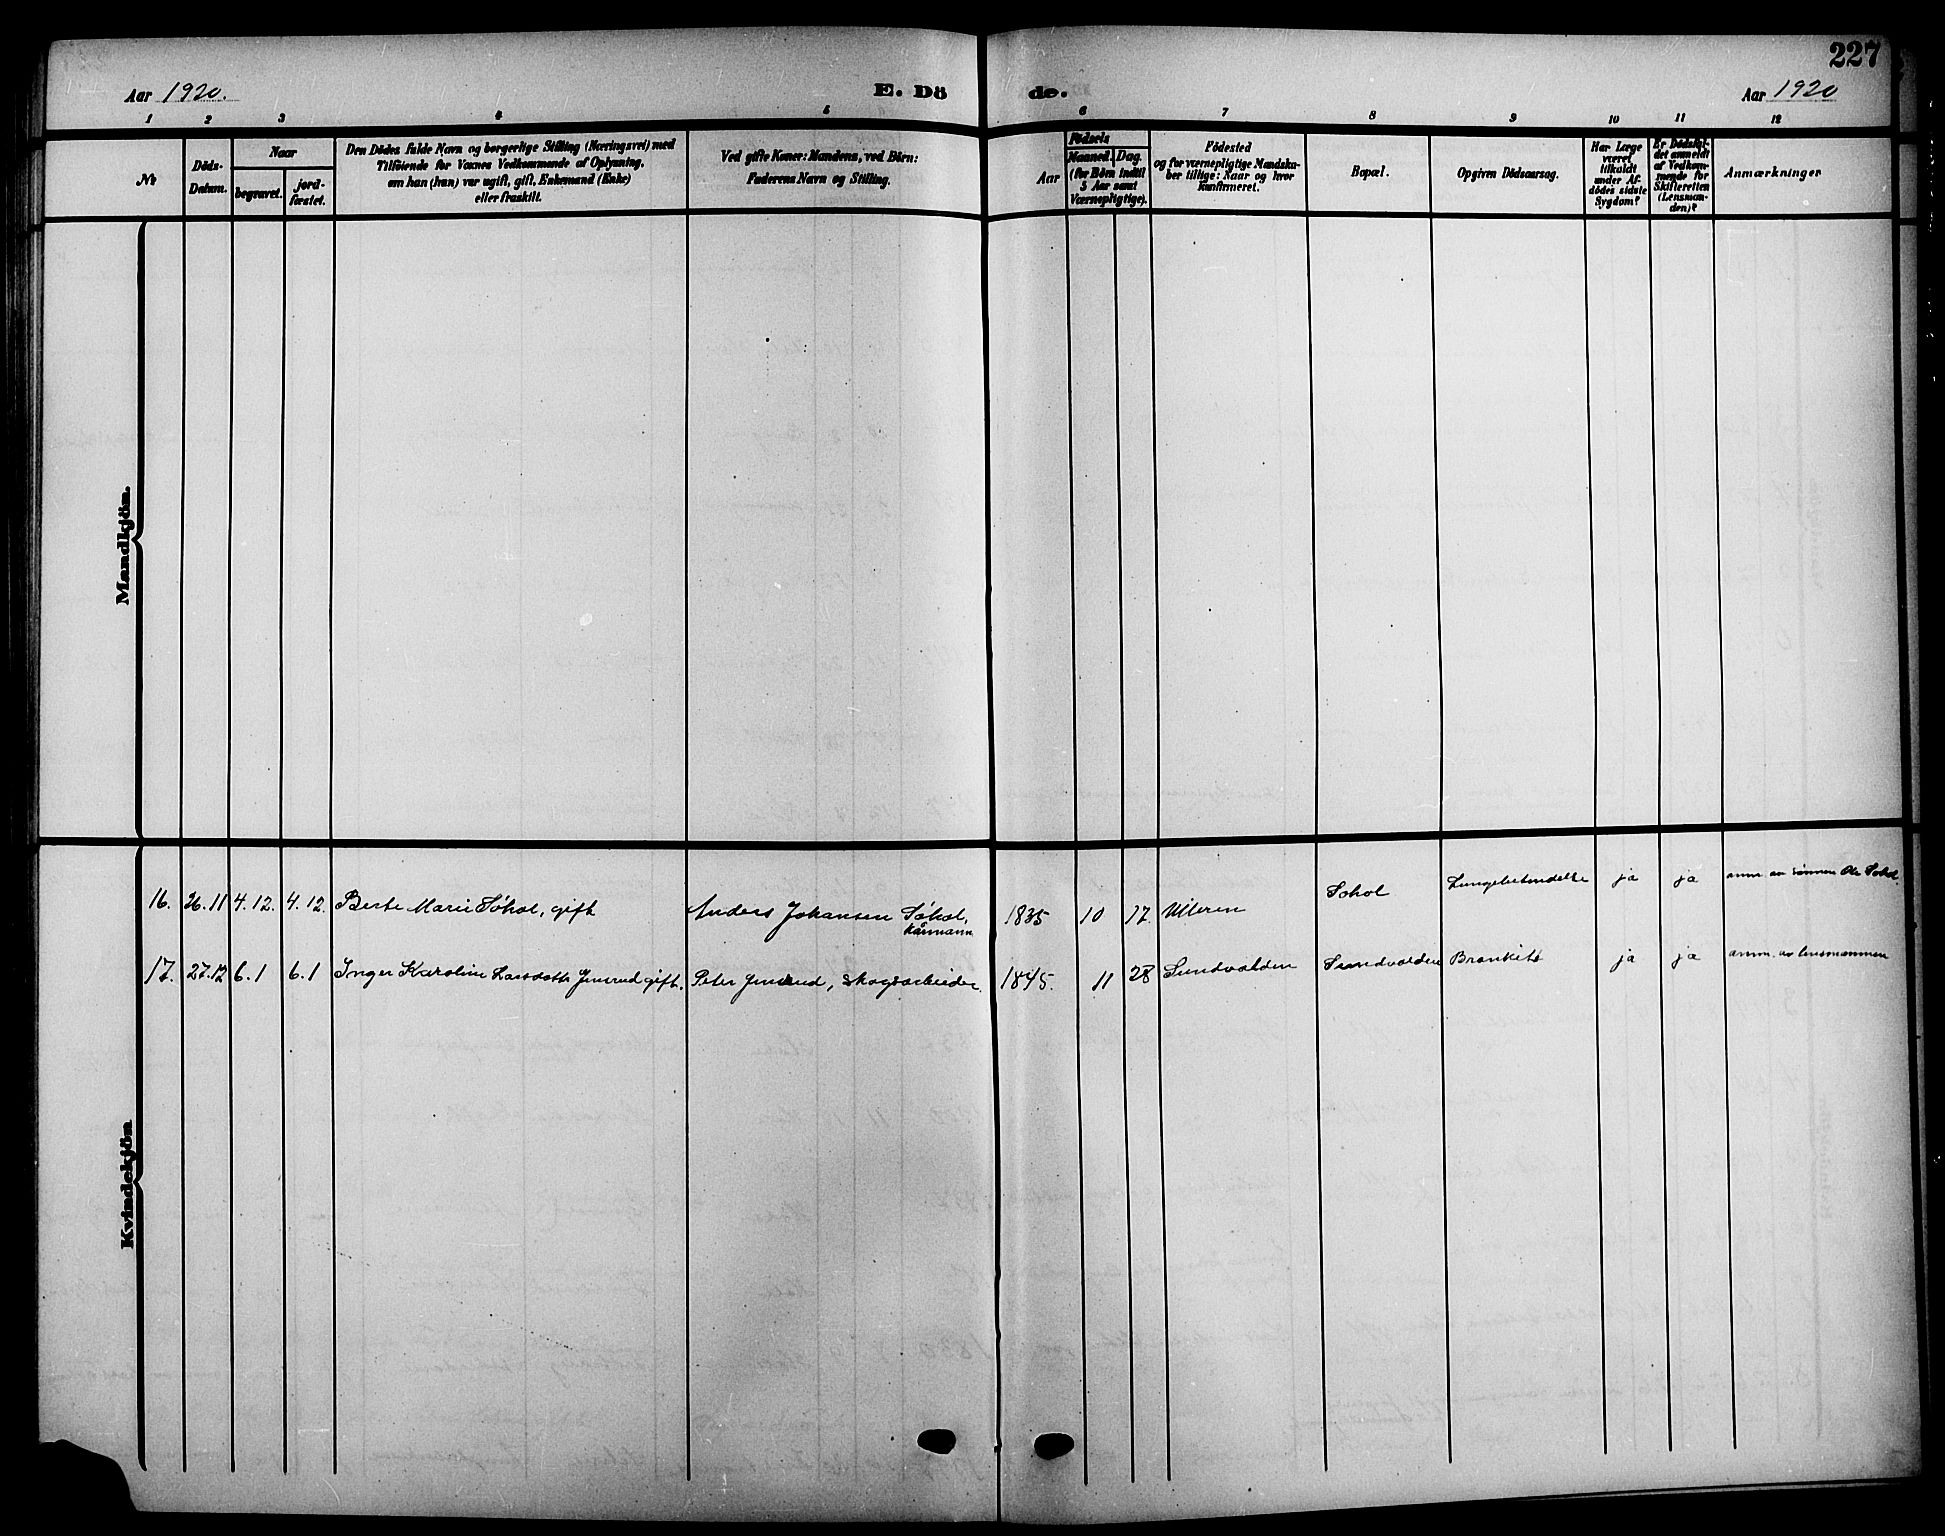 227
Aar 1920.
E. Dö
de.
Aar 1920
1 2 3 4 5 6 7 8 9 10 11 12
№
Döds-
Datum.
Naar
begravet.
jord-
fæstet.
Den Dödes fulde Navn og borgerlige Stilling (Næringsvei) med
Tilföiende for Voxnes Vedkommende af Oplysning,
om han (hun) var ugift, gift, Enkemand (Enke)
eller fraskilt.
Ved gifte Koner: Mandens, ved Börn:
Faderens Navn og Stilling.
Aar
Födsels
Maaned. Dag.
(for Börn indtil
5 Aar samt
Værnepligtige).
Födested
og for værnepligtige Mandska-
ber tillige: Naar og hvor
konfirmeret.
Bopæl.
Opgiven Dödsaarsag.
Har Læge
været
tilkaldt
under Af-
dödes sidste
Sygdom?
Er Dödsfal-
det anmeldt
af Vedkom-
mende for
Skifteretten
(Lensman-
den)?
Anmærkninger
Mandkjön.
Kvindekjön
16. 26.11 4.12. 4.12. Berte Marie Søhol, gift Anders Johansen Søhol, 1835 10 17. Ulleren Sohol Lungebetændelse ja ja anm. av sønnen Ole Søhol.
kårmann.
17. 27.12 6.1 6.1 Inger Karoline Larsdatter gift. Peter, skogsarbeider. 1845. 11 28 Sundvolden Sundvolden Bronkite ja ja anm. av lensmannen